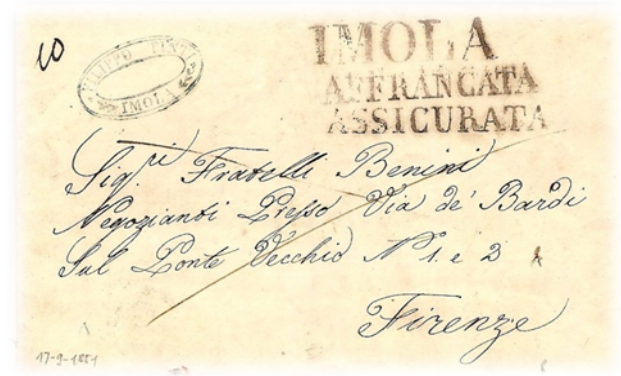 10
FILIPPO TINTI
IMOLA
IMOLA
AFFRANCATA
ASSICURATA
Sig.ri Fratelli Benini
Negozianti Presso Via de' Bardi
Sul Ponte Vecchio N° 1. e 2
Firenze
17-9-1851